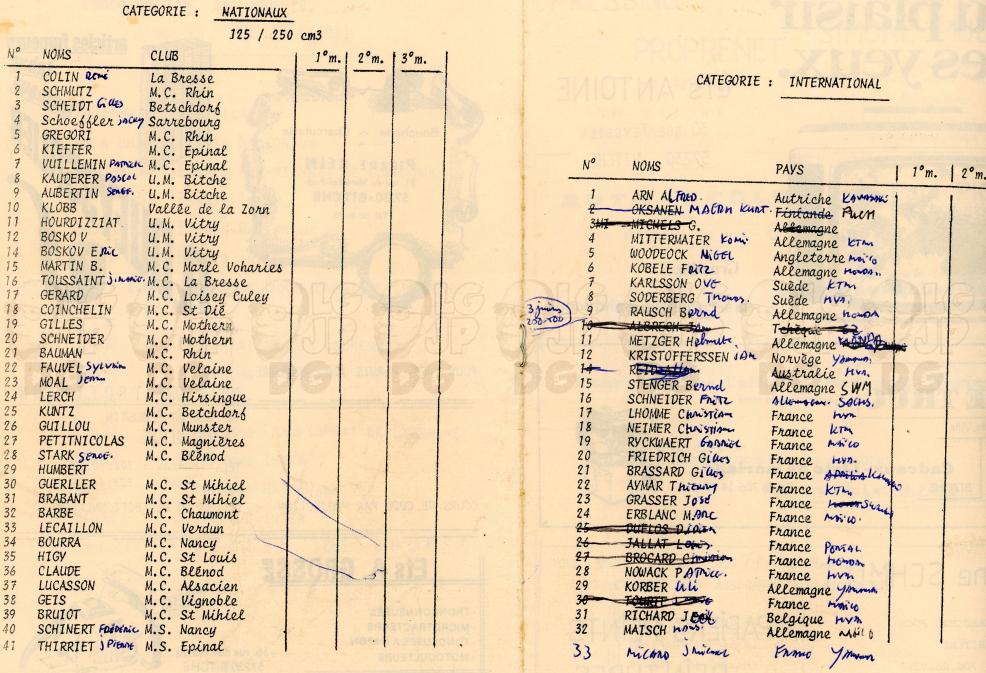 CATEGORIE : NATIONAUX
125 / 250 cm3
N° NOMS CLUB 1°m. 2°m. 3°m.
1 COLIN René La Bresse
2 SCHMUTZ M.C. Rhin
3 SCHEIDT Gilles Betschdorf
4 Schoeffler jacky Sarrebourg
5 GREGORI M.C. Rhin
6 KIEFFER M.C. Epinal
7 VUILLEMIN PATRICK M.C. Epinal
8 KAUDERER PASCAL U.M. Bitche
9 AUBERTIN SERGE. U.M. Bitche
10 KLOBB Vallée de la Zorn
11 HOURDIZZIAT. U.M. Vitry
12 BOSKOV U.M. Vitry
14 BOSKOV ERIC U.M. Vitry
15 MARTIN B. M.C. Marle Voharies
16 TOUSSAINT J.MARIE. M.C. La Bresse
17 GERARD M.C. Loisey Culey
18 COINCHELIN M.C. St Dié
19 GILLES M.C. Mothern
20 SCHNEIDER M.C. Mothern
21 BAUMAN M.C. Rhin
22 FAUVEL SYLVAIN M.C. Velaine
23 MOAL M.C. Velaine
24 LERCH M.C. Hirsingue
25 KUNTZ M.C. Betchdorf
26 GUILLOU M.C. Munster
27 PETITNICOLAS M.C. Magnières
28 STARK SERGE. M.C. Blénod
29 HUMBERT
30 GUERLLER M.C. St Mihiel
31 BRABANT M.C. St Mihiel
32 BARBE M.C. Chaumont
33 LECAILLON M.C. Verdun
34 BOURRA M.C. Nancy
35 HIGY M.C. St Louis
36 CLAUDE M.C. Blénod
37 LUCASSON M.C. Alsacien
38 GEIS M.C. Vignoble
39 BRUIOT M.C. St Mihiel
40 SCHINERT FRÉDÉRIC M.S. Nancy
41 THIRRIET J PIERRE M.S. Epinal
CATEGORIE : INTERNATIONAL
N° NOMS PAYS 1°m. 2°m.
1 ARN ALFRED. Autriche KAWASAKI
2 OKSANEN MAGRH KURT. Finlande PUCH
3 MICHELS G. Allemagne
4 MITTERMAIER Allemagne KTM
5 WOODEOCK NIGEL Angleterre MAICO
6 KOBELE FRITZ Allemagne HONDA.
7 KARLSSON OVE Suède KTM
8 SÖDERBERG Thomas. Suède HVA.
9 RAUSCH Bernd Allemagne HONDA
10 ALBRECH Tchèque
11 METZGER Helmut. Allemagne
12 KRISTOFFERSSEN JAN Norvège YAMAHA
14 Australie HVA.
15 STENGER Bernd Allemagne SWM
16 SCHNEIDER FRITZ Allemagne SACHS.
17 LHOMME Christian France HVA
18 NEIMER Christian France KTM
19 RYCKWAERT GABRIEL France MAICO
20 FRIEDRICH Gilles France HVA.
21 BRASSARD Gilles France
22 AYMAR Thierry France KTM
23 GRASSER José France
24 ERBLANC MARC France MAICO.
25 DUFLOS DIDIER France
26 JALLAT LOUIS. France PORTAL
27 BROCARD Christian France HONDA
28 NOWACK PATRICE. France HVA
29 KORBER Uli Allemagne YAMAHA
30 France MAICO
31 RICHARD Belgique HVA
32 MAISCH Allemagne MAICO
33 MICARD J MICHEL FRANCE YAMAHA
3
250-500